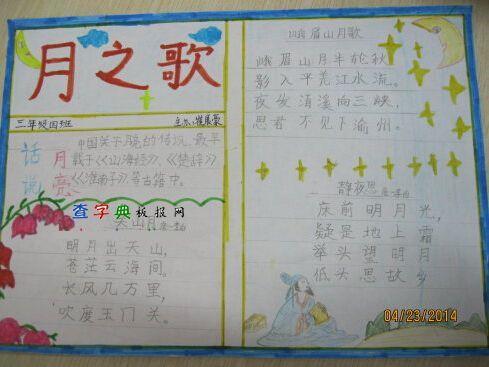 月之歌
三年级四班
话说
月亮
中国关于月亮的传说,最早
载于《山海经》、《楚辞》
《淮南子》等古籍中。
查字典板报网
关山月 唐-李白
明月出天山,
苍茫云海间。
长风几万里,
吹度玉门关。
峨眉山月歌
峨眉山月半轮秋,
影入平羌江水流。
夜发清溪向三峡,
思君不见下渝州。
静夜思 唐-李白
床前明月光,
疑是地上霜
举头望明月
低头思故乡
04/23/2014